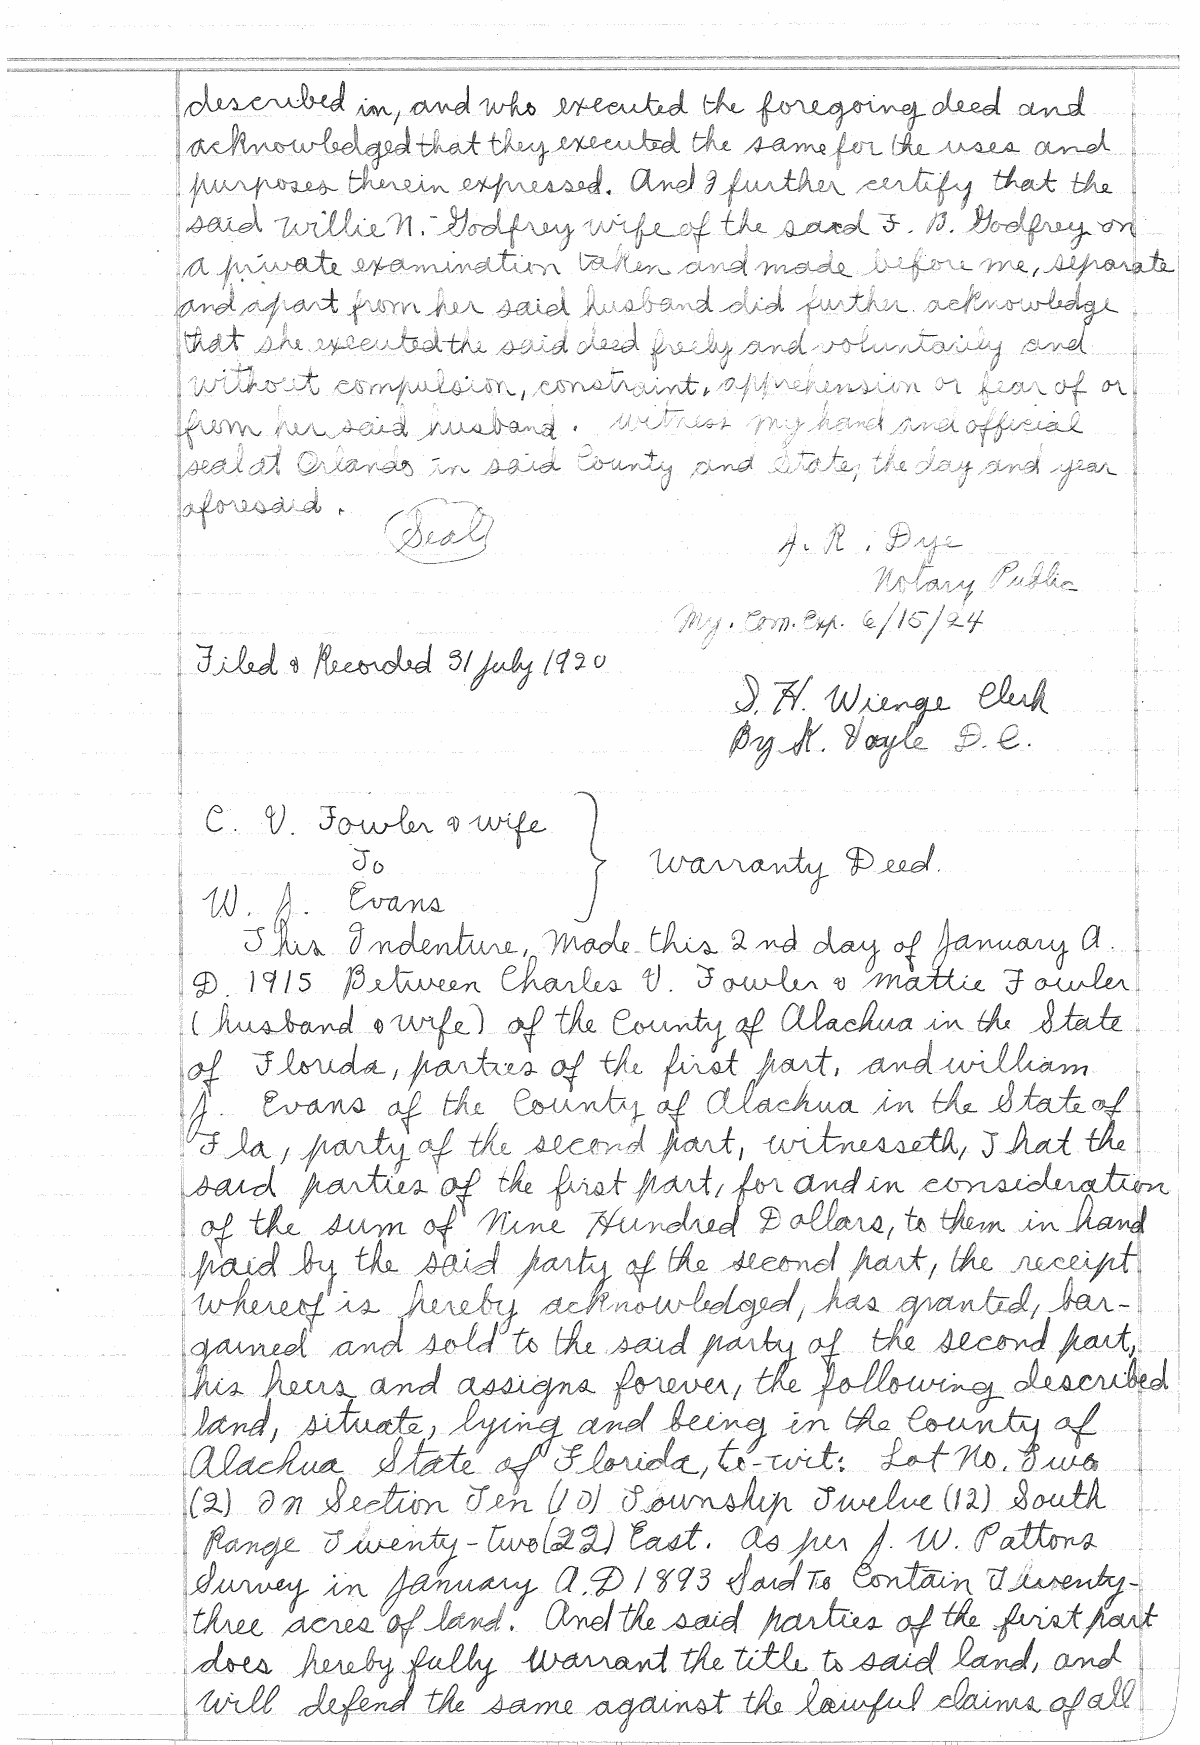 described in, and who executed the foregoing deed and
acknowledged that they executed the same for the uses and
purposes therein expressed. And I further certify that the
said Willie N. Godfrey wife of the said F. B. Godfrey on
a private examination taken and made before me, separate
and apart from her said husband did further acknowledge
that she executed the said deed freely and voluntarily and
without compulsion, constraint, apprehension or fear of or
from her said husband. Witness my hand and official
seal at Orlando in said County and State, the day and year
aforesaid.
Seal
J. R. Dye
Notary Public
My. Com. Exp. 6/15/24
Filed & Recorded 31 July 1920
S. H. Wienge Clerk
By K. Voyle D. C.
C. V. Fowler & wife
To
Warranty Deed.
W. J. Evans
This Indenture, Made this 2nd day of January A.
D. 1915 Between Charles V. Fowler & Mattie Fowler
(husband & wife) of the County of Alachua in the State
of Florida, parties of the first part, and William
J. Evans of the County of Alachua in the State of
Fla, party of the second part, witnesseth, That the
said parties of the first part, for and in consideration
of the sum of Nine Hundred Dollars, to them in hand
paid by the said party of the second part, the receipt
whereof is hereby acknowledged, has granted, bar-
gained and sold to the said party of the second part,
his heirs and assigns forever, the following described
land, situate, lying and being in the County of
Alachua State of Florida, to-wit: Lot No. Two
(2) In Section Ten (10) Township Twelve (12) South
Range Twenty-two (22) East. As per J. W. Pattons
Survey in January A.D 1893 Said To Contain Twenty-
three acres of land. And the said parties of the first part
does hereby fully warrant the title to said land, and
will defend the same against the lawful claims of all